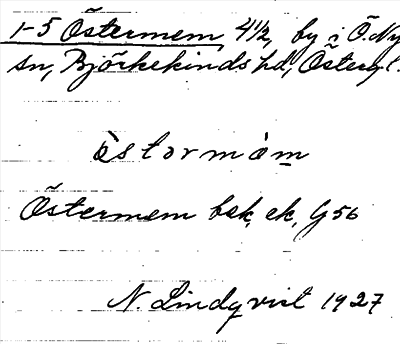 1-5 Östermem 4 1/2, by i Ö. Ny
sn, Björkekinds hd, Östergl.
östərmèm
Östermem bsk, ek, G56
N. Lindqvist 1927